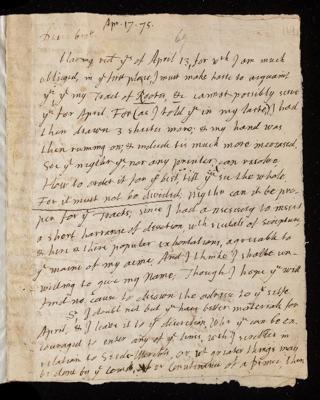 Apr. 17. 75.
Having recd yrs of April 13, for wch I am much
obliged, in ye first place, I must make haste to acquaint
yu yt my Tract of cannot possibly serve
yu for April. For (as I told yu in my last) I had
then drawn 3 sheets more, & my hand was
then running on, & indeed tis much more increased.
Soe yt neyther yu nor any printer can resolve
How to order it for ye best, till yu see the whole
For it must not be divided, Neyther can it be pro-
per for yr Tracts, since I had a necessity to insert
a short harrangue of devotion with recitals of Scripture
& here & there popular exhortations, agreeable to
ye manner of my ayme. And I thinke I shall be un-
willing to give my Name, Though I hope yu will
find no cause to disown the adresse to yr selfe.
Sr, I doubt not but yu have better materials for
April, & I leave it to yr discretion, Whr yu can be en-
couraged to enter any of ye lines, wch I scribble in
relation to or wt greater things may
be done by ye of a prince, then